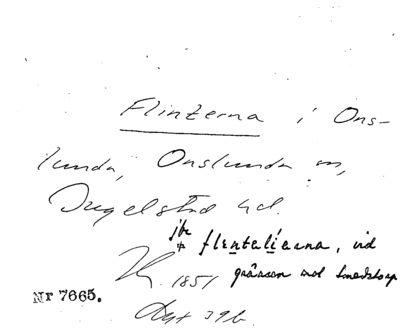 Flinterna i Ons-
lunda, Onslunda sn,
Ingelstad hd.
jfr
flentelierna, vid
1851 gränsen mot Smedstorp
Nr 7665.
39b